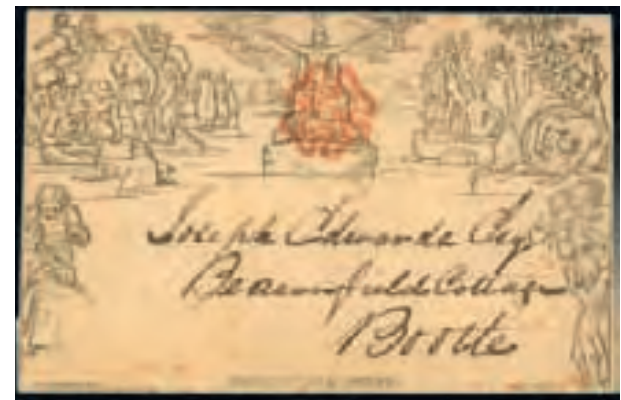 Joseph Edwards Esqr
Beaconsfield Cottage
Bootle